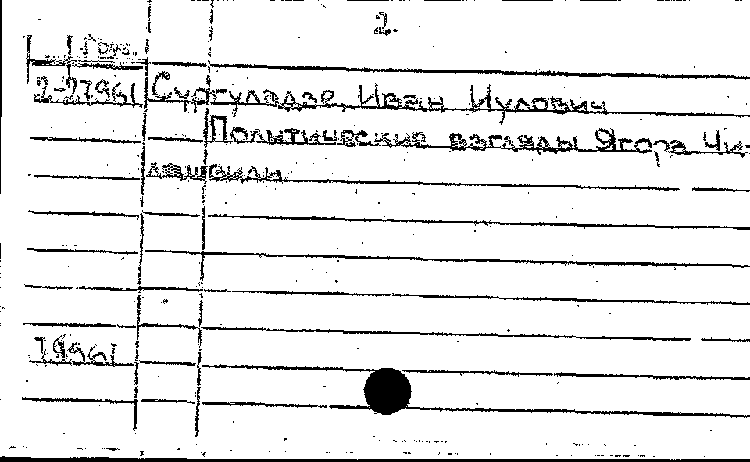 2.
Груз.
2-27961 Сургуладзе, Иван Иулович
Политические взгляды Ягора Чи-
лашвили
19961